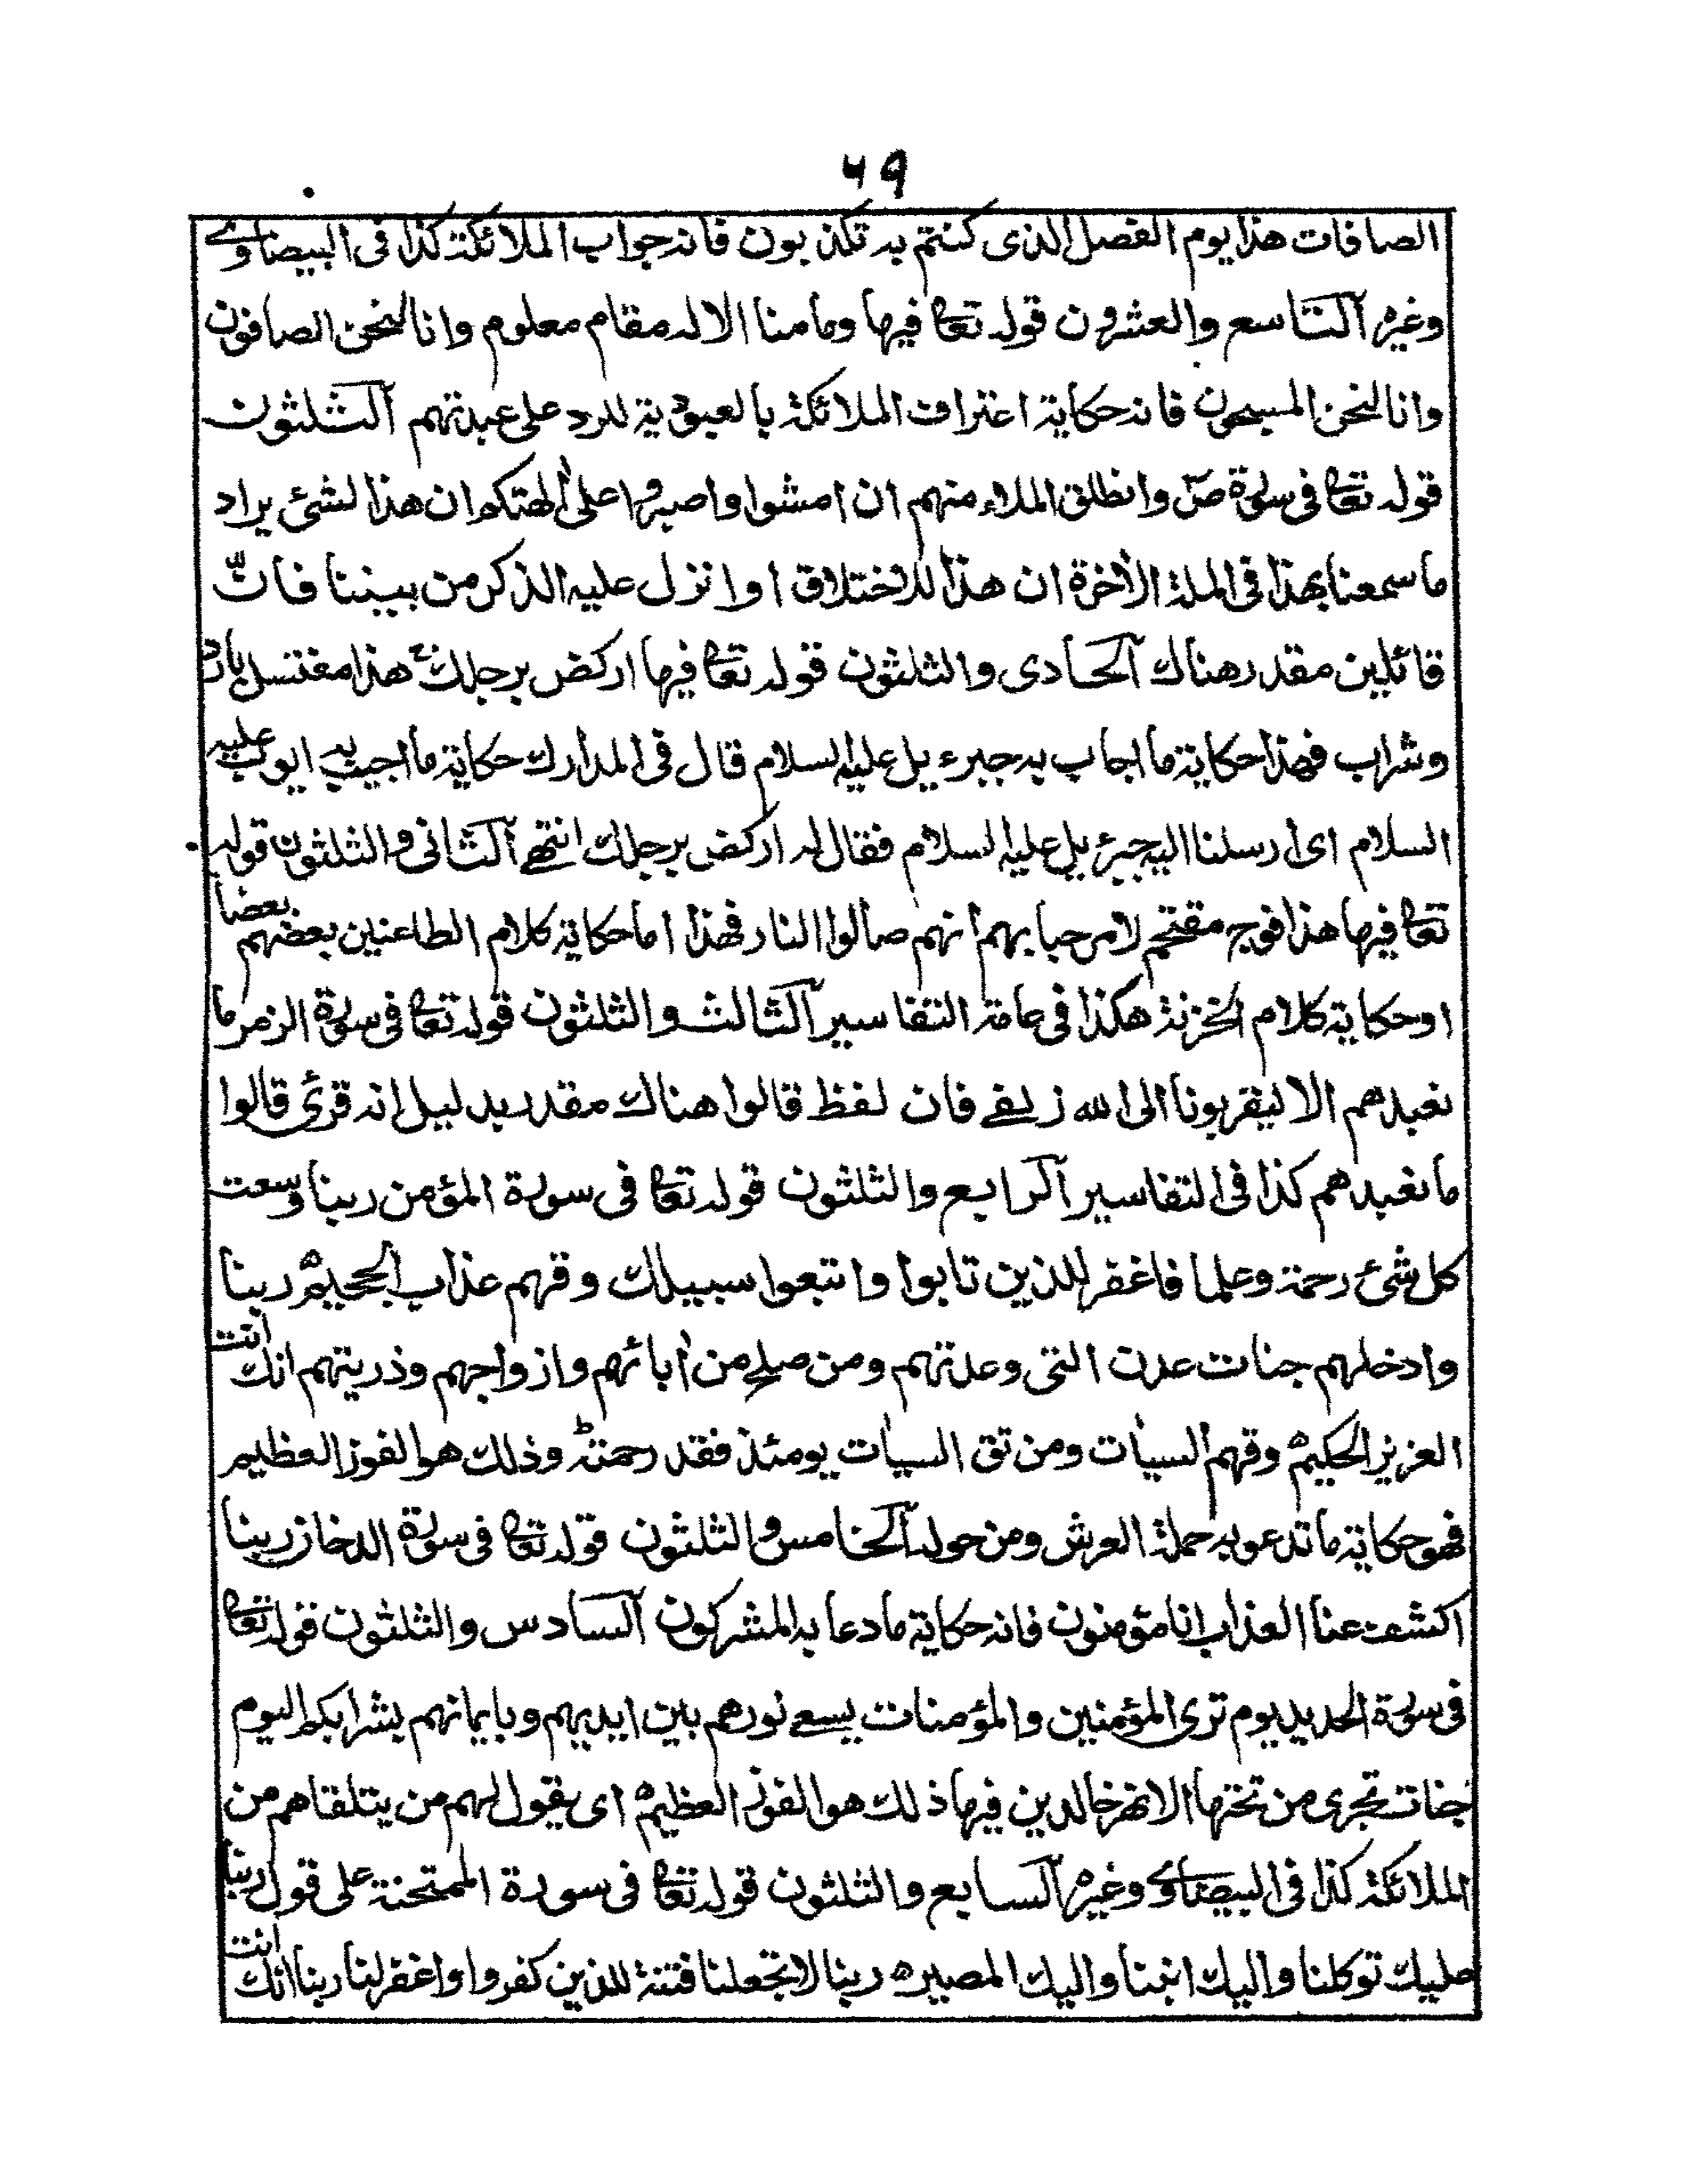 ۶۹
الصافات هذا يوم الفصل الذى كنتم به تكذبون فانه جواب الملائكة كذا فى البيضاوے
وغيره التاسع والعشرون قوله تعا فيها ومامنا الا له مقام معلوم وانا لنحن الصافون
وانا لنحن المسبحون فانه حكاية اعتراف الملائكة بالعبودية للرد على عبدتهم الثلثون
قوله تعا فى سورة صٓ وانطلق الملاء منهم ان امشوا واصبروا على اٰلهتكم ان هذا لشئ يراد
ما سمعنا بهذا فى الملة الاٰخرة ان هذا الا اختلاق اوانزل عليه الذكر من بيننا فانّ
قائلين مقدر هناك الحادى والثلثون قوله تعا فيها اركض برجلك هذا مغتسل بارد
وشراب فهذا حكاية ما اجاب به جبرءيل عليه السلام قال فى المدارك حكاية ما اجيب به ايوب عليه
السلام اى ارسلنا اليه جبرئيل عليه السلام فقال له اركض برجلك انتهے الثانى والثلثون قوله
تعا فيها هذا فوج مقتحم لامرحبا بهم انهم صالوا النار فهذا اما حكاية كلام الطاعنين بعضهم بعضا
اوحكاية كلام الخزنة هكذا فى عامة التفاسير الثالث والثلثون قوله تعا فى سورة الزمر ما
نعبدهم الا ليقربونا الى الله زلفے فان لفظ قالوا هناك مقدر بدليل انه قرئ قالوا
ما نعبدهم كذا فى التفاسير الرابع والثلثون قوله تعا فى سورة المؤمن ربنا وسعت
كل شئ رحمة وعلما فاغفر للذين تابوا واتبعوا سبيلك وقهم عذاب الجحيم ربنا
وادخلهم جنات عدن التى وعدتهم ومن صلح من اٰبائهم وازواجهم وذريتهم انك انت
العزيز الحكيم وقهم السياٰت ومن تق السياٰت يومئذ فقد رحمته وذلك هو الفوز العظيم
فهو حكاية ما تدعو به حملة العرش ومن حوله الخامس والثلثون قوله تعا فى سورة الدخان ربنا
اكشف عنا العذاب انا مؤمنون فانه حكاية ما دعا به المشركون السادس والثلثون قوله تعا
فى سورة الحديد يوم ترى المؤمنين والمؤمنات يسعے نورهم بين ايديهم وبايمانهم بشرابكم اليوم
جنات تجرى من تحتها الانهر خالدين فيها ذلك هو الفوز العظيم اى يقول لهم من يتلقاهم من
الملائكة كذا فى البيضاوے وغيره السابع والثلثون قوله تعا فى سورة الممتحنة على قول ربنا
عليك توكلنا واليك انبنا واليك المصير ربنا لا تجعلنا فتنة للذين كفروا واغفر لنا ربنا انك انت